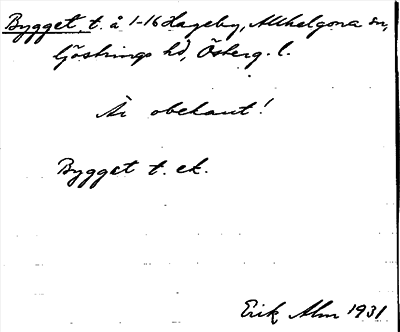 Bygget, t. å 1-16 Hageby, Allhelgona sn,
Göstrings hd, Österg. l.
Är obekant!
Bygget t. ek.
Erik Alm 1931